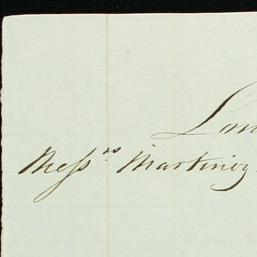 Lon
Mess.rs Martinez